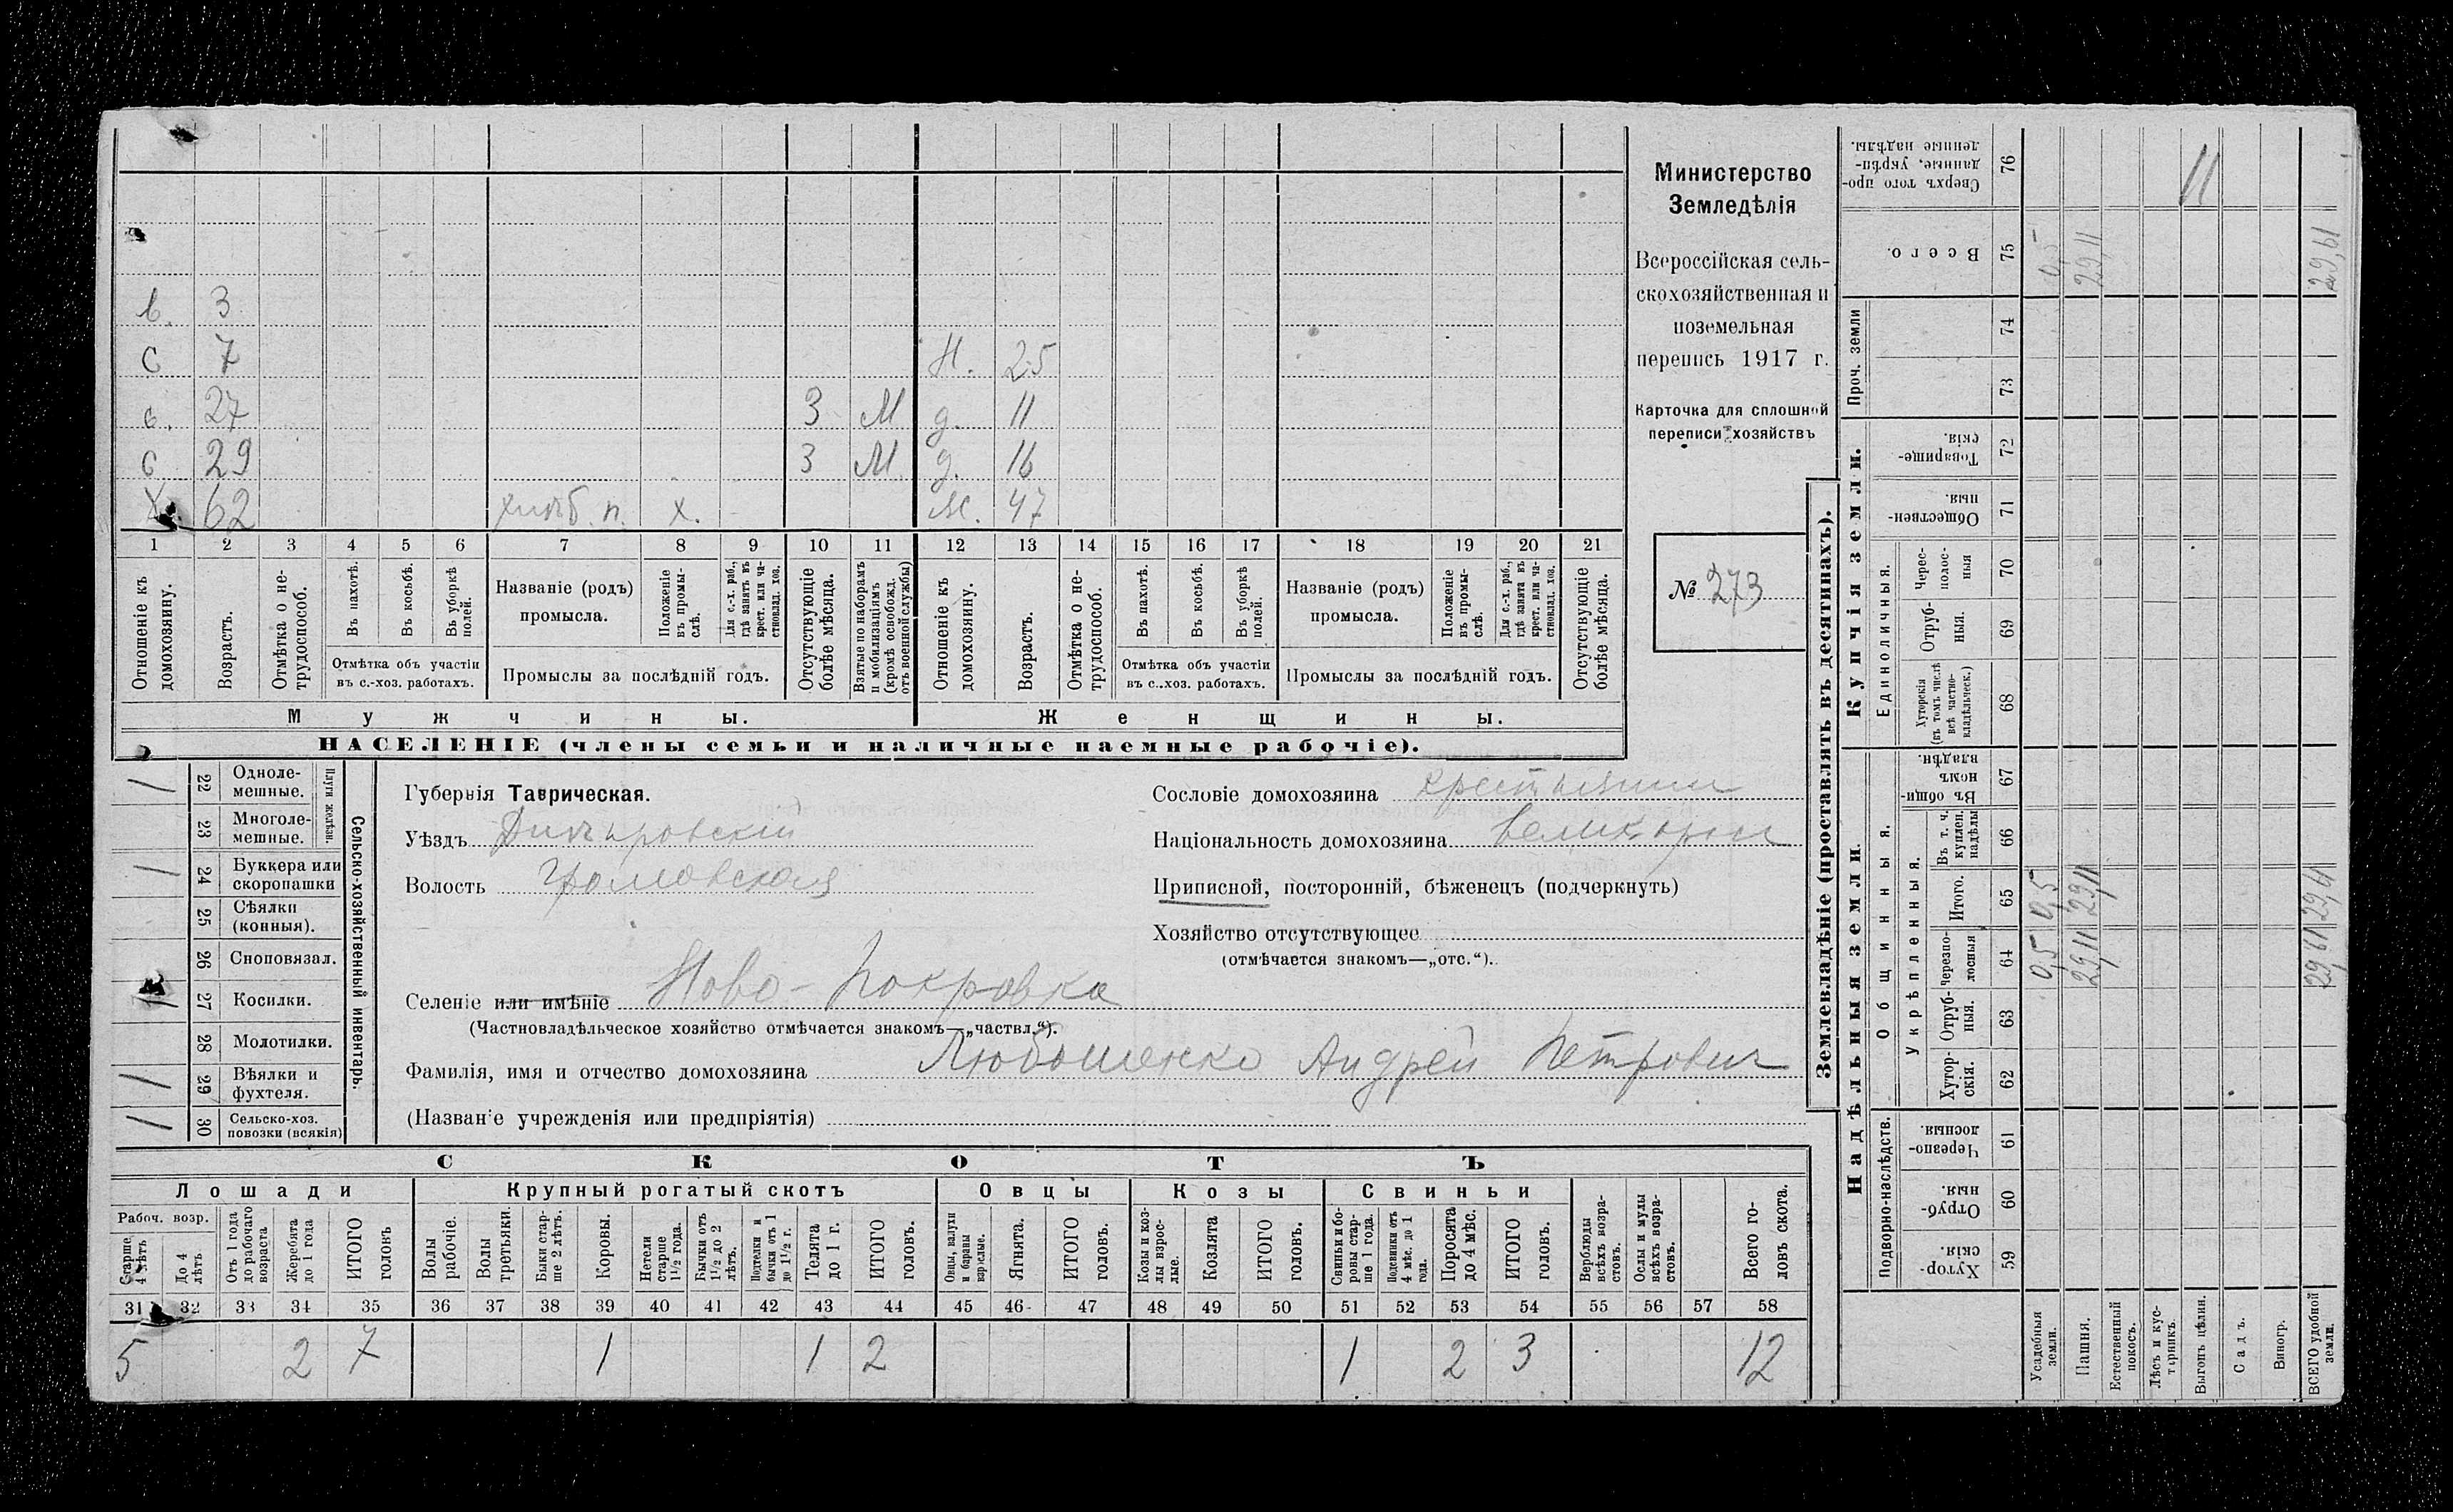 в. 3
с 7 Н. 25
с. 27 3 М д. 11
с 29 3 М. д. 16
Х. 62 хлѣб. п. х. Ж. 47
1 2 3 4 5 6 7 8 9 10 11 12 13 14 15 16 17 18 19 20 21
Отношеніе къ домохозяину.
Возрастъ.
Отмѣтка о не-
трудоспособ.
Въ пахотѣ.
Въ косьбѣ.
Въ уборкѣ
полей.
Отмѣтка объ участіи
въ с.-хоз. работахъ.
Названіе (родъ)
промысла.
Положеніе
въ промы-
слѣ.
Для с.-х. раб.,
гдѣ занятъ въ
крест. или ча-
стновлад. хоз.
Промыслы за послѣдній годъ.
Отсутствующіе
болѣе мѣсяца.
Взятые по наборамъ
и мобилизаціямъ
(кромѣ освобожд.
отъ военной службы)
Отношеніе къ
домохозяину.
Возрастъ.
Отмѣтка о не-
трудоспособ.
Въ пахотѣ.
Въ косьбѣ.
Въ уборкѣ
полей.
Отмѣтка объ участіи
въ с.-хоз. работахъ.
Названіе (родъ)
промысла.
Положеніе
въ промы-
слѣ.
Для с.-х. раб.,
гдѣ занята въ
крест. или ча-
стновлад. хоз.
Промыслы за послѣдній годъ.
Отсутствующіе
болѣе мѣсяца.
Мужчины. Женщины.
НАСЕЛЕНІЕ (члены семьи и наличные наемные рабочіе).
Министерство
Земледѣлія
Всероссійская сель-
скохозяйственная и
поземельная
перепись 1917 г.
Карточка для сплошной
переписи хозяйствъ
№ 273
Сельско-хозяйственный инвентарь.
Плуги желѣзн.
/ 22 Одноле-
мешные.
23 Многоле-
мешные.
/ 24 Буккера или
скоропашки
25 Сѣялки
(конныя).
26 Сноповязал.
/ 27 Косилки.
28 Молотилки.
/ 29 Вѣялки и
фухтеля.
/ 30 Сельско-хоз.
повозки (всякія)
Губернія Таврическая.
Уѣздъ Днѣпровскій
Волость Громовская
Сословіе домохозяина крестьянин
Національность домохозяина великорос
Приписной, посторонній, бѣженецъ (подчеркнуть)
Хозяйство отсутствующее
(отмѣчается знакомъ—„отс.“).
Селеніе или имѣніе Ново-Покровка
(Частновладѣльческое хозяйство отмѣчается знакомъ—„частвл.“).
Фамилія, имя и отчество домохозяина Любошенко Андрей Петрович
(Названіе учрежденія или предпріятія)
СКОТЪ
Лошади Крупный рогатый скотъ Овцы Козы Свиньи
Рабоч. возр.
Старше
4 лѣтъ
До 4
лѣтъ
Отъ 1 года
до рабочаго
возраста
Жеребята
до 1 года
ИТОГО
головъ
Волы
рабочіе.
Волы
третьяки.
Быки стар-
ше 2 лѣтъ.
Коровы.
Нетели
старше
1½ года.
Бычки отъ
1½ до 2
лѣтъ.
Подтелки и
бычки отъ 1
до 1½ г.
Телята
до 1 г.
ИТОГО
головъ.
Овцы, валухи
и бараны
взрослые.
Ягнята.
ИТОГО
головъ.
Козы и коз-
лы взрос-
лые.
Козлята
ИТОГО
головъ.
Свиньи и бо-
ровы стар-
ше 1 года.
Подсвинки отъ
4 мѣс. до 1
года.
Поросята
до 4 мѣс.
ИТОГО
головъ.
Верблюды
всѣхъ возра-
стовъ.
Ослы и мулы
всѣхъ возра-
стовъ.
Всего го-
ловъ скота.
31 32 33 34 35 36 37 38 39 40 41 42 43 44 45 46 47 48 49 50 51 52 53 54 55 56 57 58
5 2 7 1 1 2 1 2 3 12
Землевладѣніе (проставлять въ десятинахъ).
Надѣльныя земли
Купчія земли.
Подворно-наслѣдств.
Общинныя.
Укрѣпленныя.
Единоличныя.
Проч. земли
Хутор-
скія. 59
Отруб-
ныя. 60
Черезпо-
лосныя. 61
Хутор-
скія. 62
Отруб-
ныя. 63
Черезпо-
лосныя 64 0,5 29,11 29,61
Итого. 65 0,5 29,11 29,61
Въ т. ч.
куплен.
надѣлы 66
Въ общи-
номъ
владѣн. 67
Хуторскія
(въ томъ числѣ
всѣ частно-
владѣльческ.) 68
Отруб-
ныя. 69
Черес-
полос-
ныя 70
Обществен-
ныя. 71
Товарище-
скія. 72
73
74
Всего. 75 0,5 29,11 29,61
Сверхъ того про-
данные, укрѣп-
ленные надѣлы. 76 11
Усадебныя
земли.
Пашня.
Естественный
покосъ.
Лѣсъ и кус-
тарникъ.
Выгонъ цѣлин.
Садъ.
Виногр.
ВСЕГО удобной
земли.